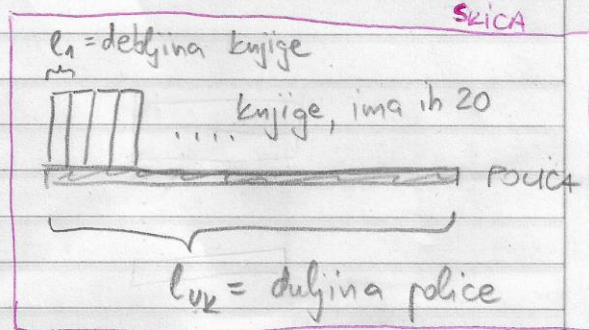 SKICA
l₁ = debljina knjige
.... knjige, ima ih 20
POLICA
l_uk = duljina police